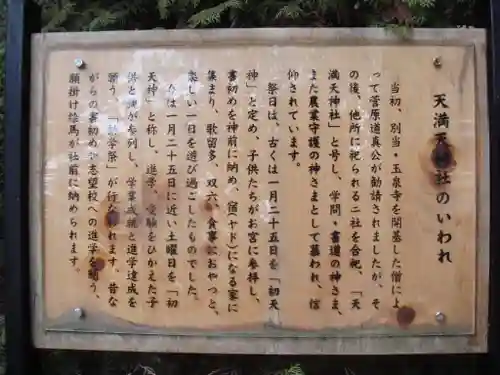 天満天神社のいわれ
当初、別当・玉泉寺を開基した僧によ
って菅原道真公が勧請されましたが、そ
の後、他所に祀られる二社を合祀、「天
満天神社」と号し、学問、書道の神さま、
また農業守護の神さまとして慕われ、信
仰されています。
祭日は、古くは一月二十五日を「初天
神」と定め、子供たちがお宮に参拝し、
書初めを神前に納め、宿(ヤド)になる家に
集まり、歌留多、双六、食事におやつと、
楽しい一日を遊び過ごしたものでした。
今は一月二十五日に近い土曜日を「初
天神」と称し、進学、受験をひかえた子
供と親が参列し、学業成就と進学達成を
願う、「勧学祭」が行なわれます。昔な
がらの書初めや志望校への進学を願う、
願掛け絵馬が社前に納められます。